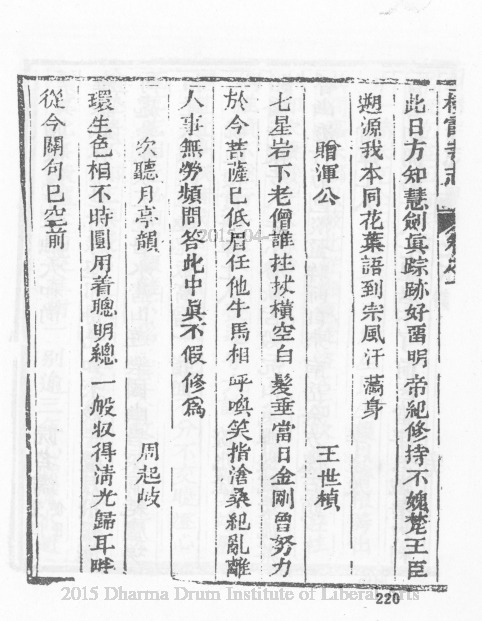 棲霞寺志
此日方知慧劍眞踪跡好畱明帝紀修持不媿楚王臣
遡源我本同花葉語到宗風汗滿身
贈渾公 王世楨
七星岩下老僧誰拄杖橫空白髮垂當日金剛曾努力
於今菩薩已低眉任他牛馬相呼喚笑指滄桑紀亂離
人事無勞頻問答此中眞不假修爲
次聽月亭韻 周起岐
環生色相不時圓用着聰明總一般収得淸光歸耳畔
從今闗句已空前
220
2015 Dharma Drum Institute of Liberal Arts